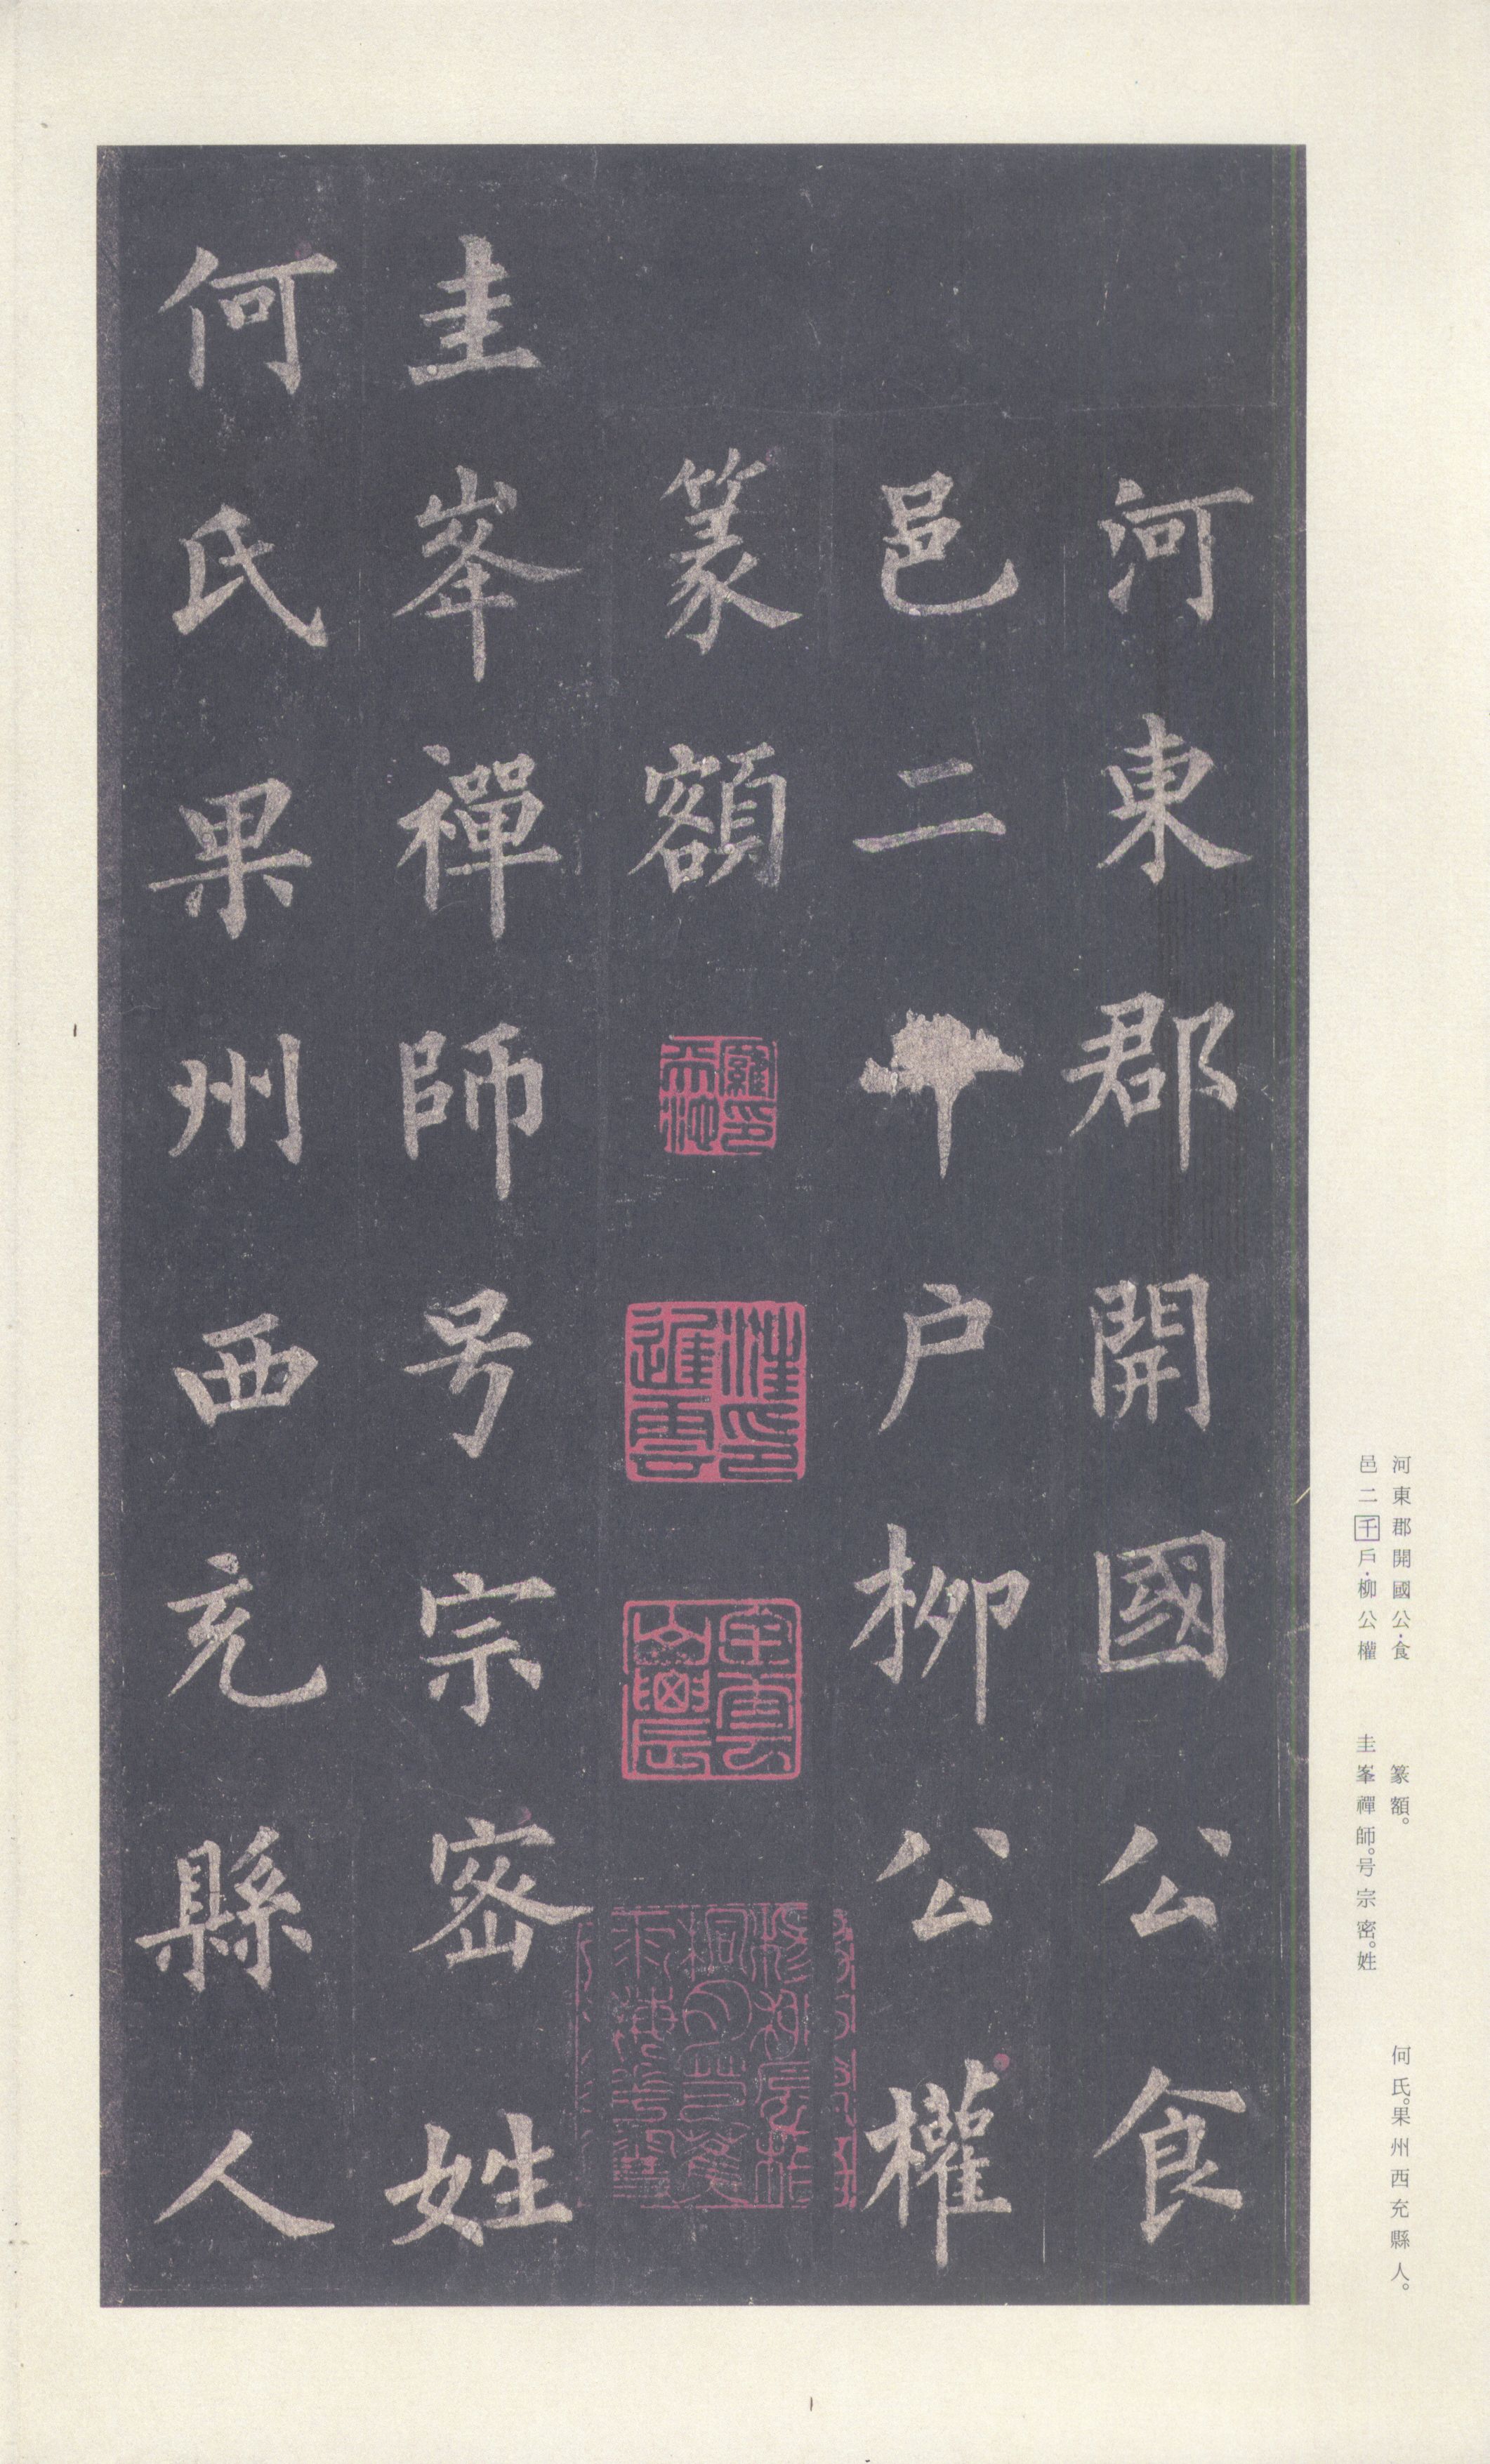 河東郡開國公食
邑二千户柳公權
篆額
圭峯禪師号宗密姓
何氏果州西充縣人
河東郡開國公·食
邑二千戶·柳公權
篆額。
圭峯禪師。号宗密。姓
何氏。果州西充縣人。